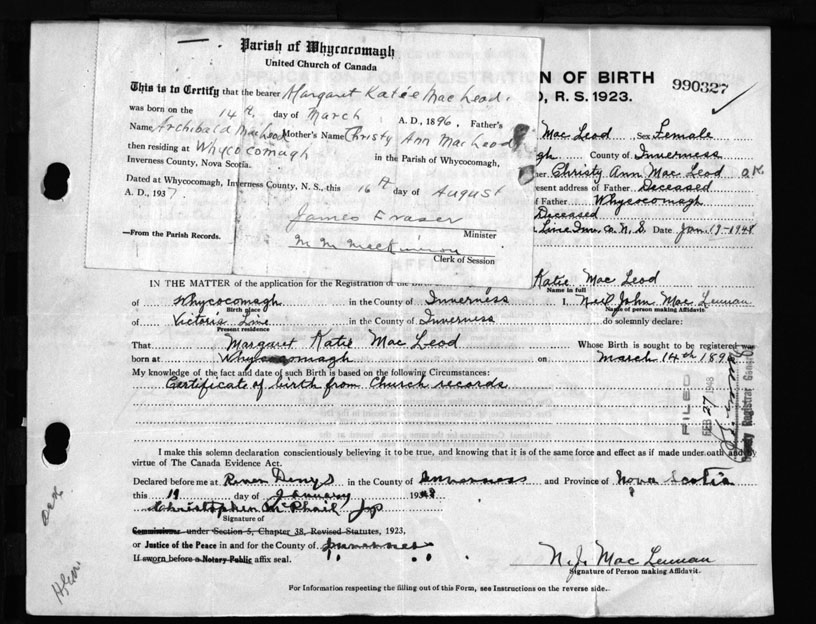 Parish of Whycocomagh
United Church of Canada
This is to Certify that the bearer Margaret Katie MacLeod.
was born on the 14th day of March A. D., 1896. Father's
Name Archibald MacLeod Mother's Name Christy Ann MacLeod
then residing at Whycocomagh in the Parish of Whycocomagh,
Inverness County, Nova Scotia.
Dated at Whycocomagh, Inverness County, N. S., this 16th day of August
A. D., 1937.
James Fraser
Minister
—From the Parish Records.
Clerk of Session
N OF BIRTH
990327
, R. S. 1923.
Mac Leod , Sex Female
gh County of Inverness
her Christy Ann Mac Leod OK
resent address of Father Deceased
f Father Whycocomagh
Deceased
Line Inv. Co. N. S. Date Jan. 19-1948
IN THE MATTER of the application for the Registration of the Birth Katie Mac Leod
Name in full
of Whycocomagh in the County of Inverness I, Neil John Mac Lennan
Birth place
Name of person making Affidavit
of Victoria Line in the County of Inverness do solemnly declare:
Present residence
That Margaret Katie Mac Leod Whose Birth is sought to be registered was
born at Whycocomagh on March 14th 189
My knowledge of the fact and date of such Birth is based on the following Circumstances:
Certificate of birth from Church records
FILED
FEB 27 1948
Deputy Registrar General
I make this solemn declaration conscientiously believing it to be true, and knowing that it is of the same force and effect as if made under oath and by
virtue of The Canada Evidence Act.
Declared before me at River Denys in the County of Inverness and Province of Nova Scotia
this 19 day of January 1948
Christopher McPhail Jp
Signature of
Commissioner under Section 5, Chapter 38, Revised Statutes, 1923,
or Justice of the Peace in and for the County of Inverness
If sworn before a Notary Public affix seal.
N. J. Mac Lennan
Signature of Person making Affidavit.
For Information respecting the filling out of this Form, see Instructions on the reverse side.